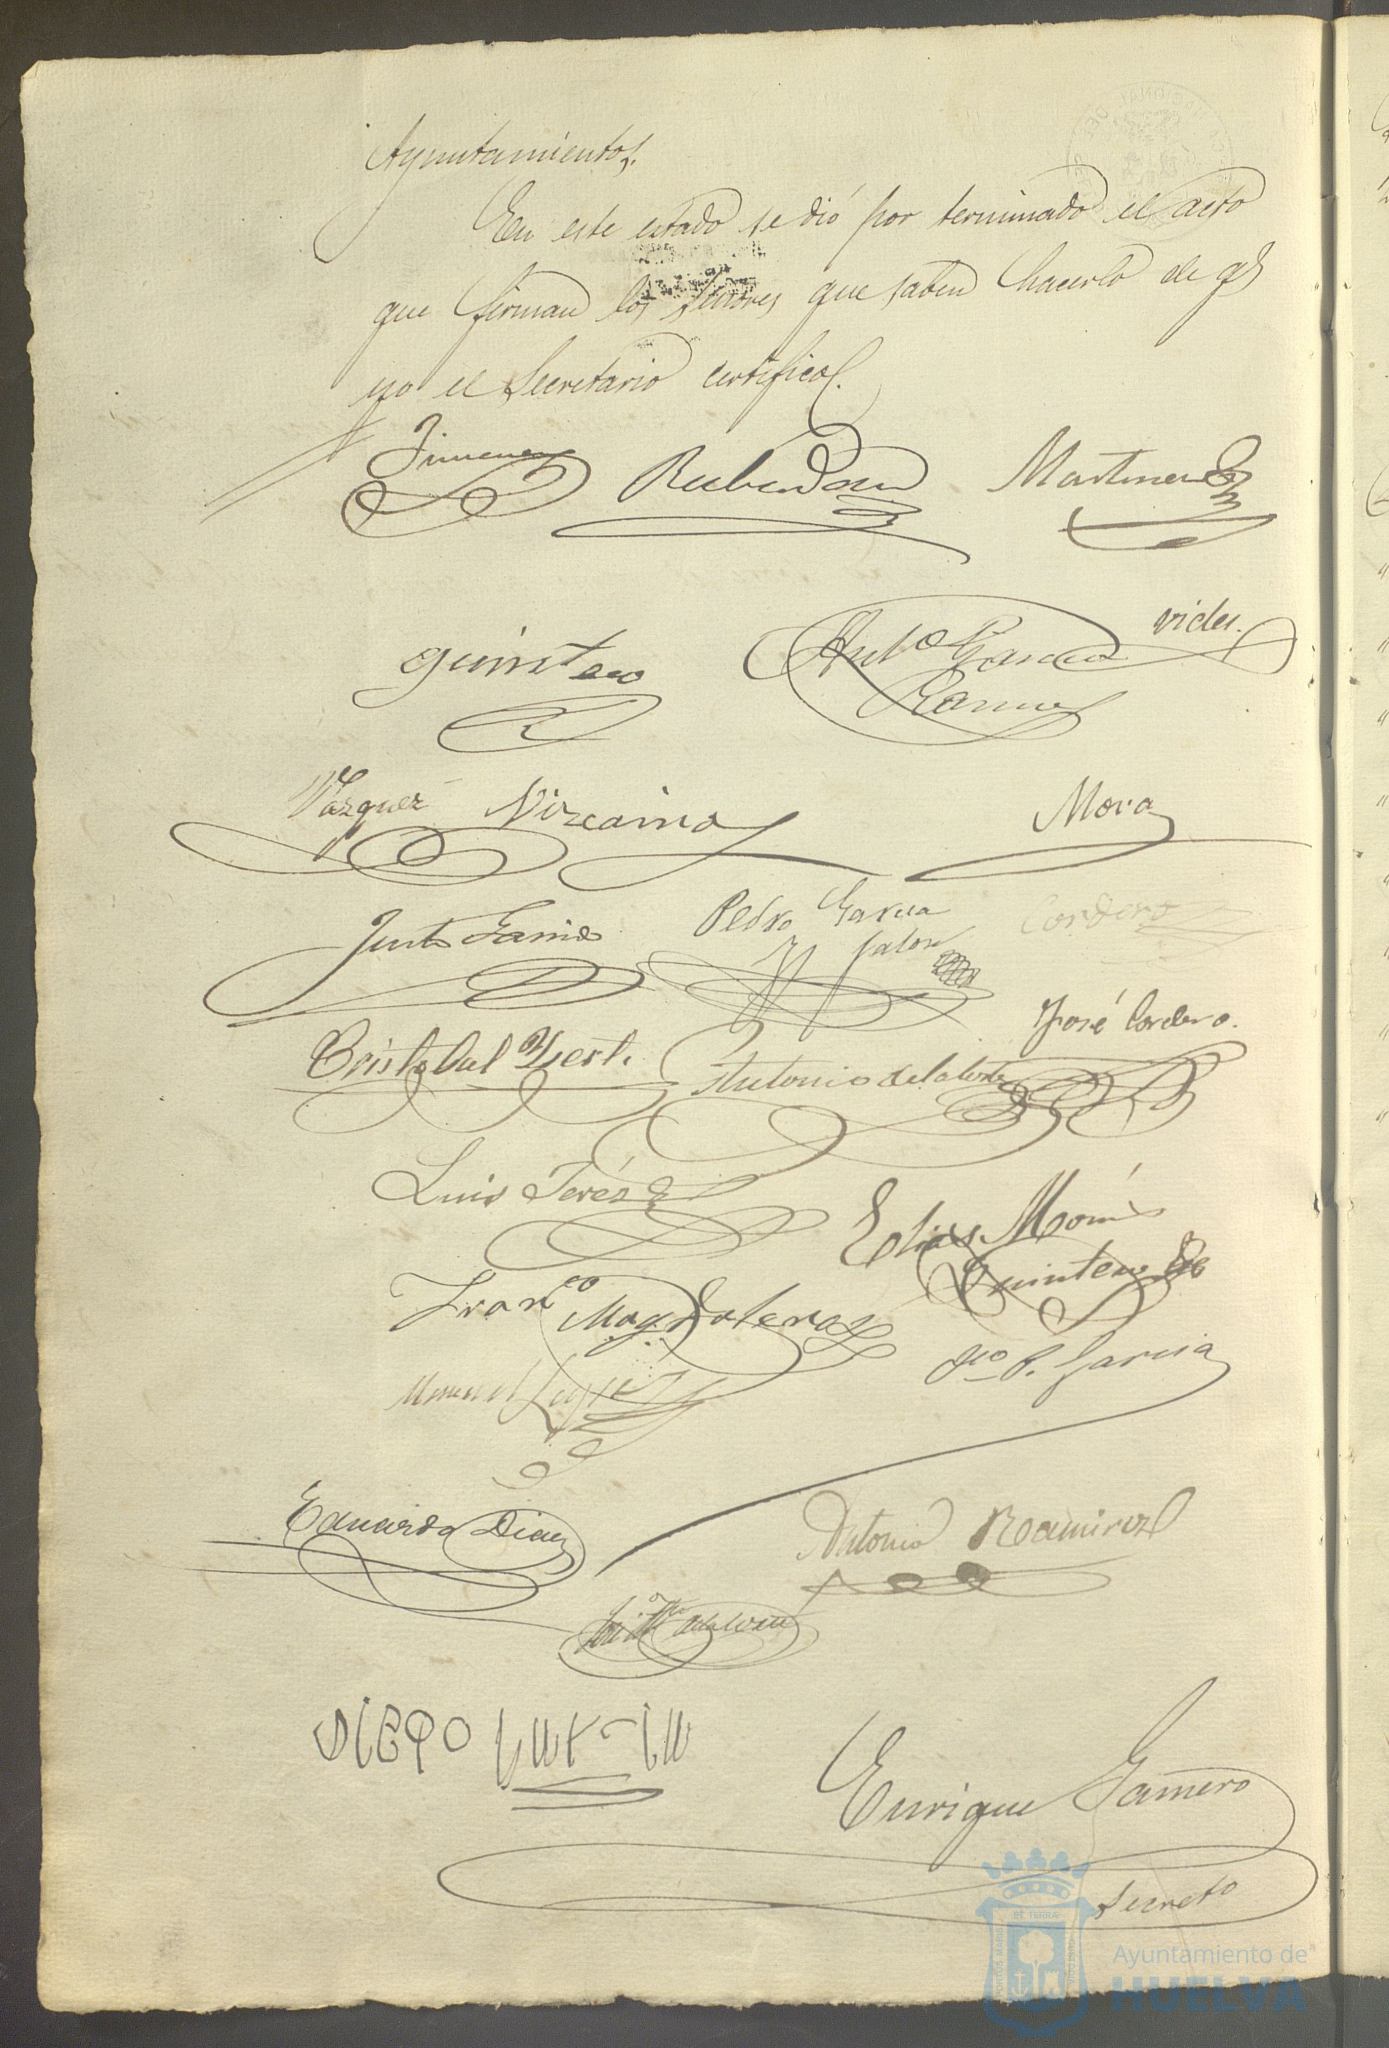 Ayuntamiento.
En este estado se dió por terminado el acto
que firman los Señores que saben hacerlo de q
yo el Secretario certifico.
Jimenez
Martinez
Quintero
Anto Garcia
Ramos
vides.
Vazquez
Vizcaino
Mora
Justo Garrido
Pedro Garcia
Jalon
Cordero
José Cordero.
Cristobal
Antonio de la
Luis Peréz
Elias Morón
Quintero
Franco Magdalena
Manuel Lopez
P. Garcia
Eduardo Diaz
Antonio Ramirez
DIEGO
Enrique Gamero
Secreto
Ayuntamiento de
HUELVA